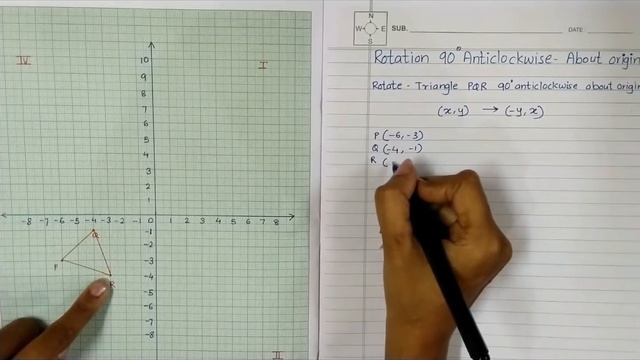 IV
I
10
9
8
7
6
5
4
3
2
1
-8 -7 -6 -5 -4 -3 -2 -1 0 1 2 3 4 5 6 7 8
-1
-2
-3
-4
-5
-6
-7
-8
Q
P
R
II
N
W E
S
SUB.
DATE:
Rotation 90° Anticlockwise - About origin
Rotate - Triangle PQR 90° anticlockwise about origin
(x,y) → (-y, x)
P (-6, -3)
Q (-4, -1)
R (